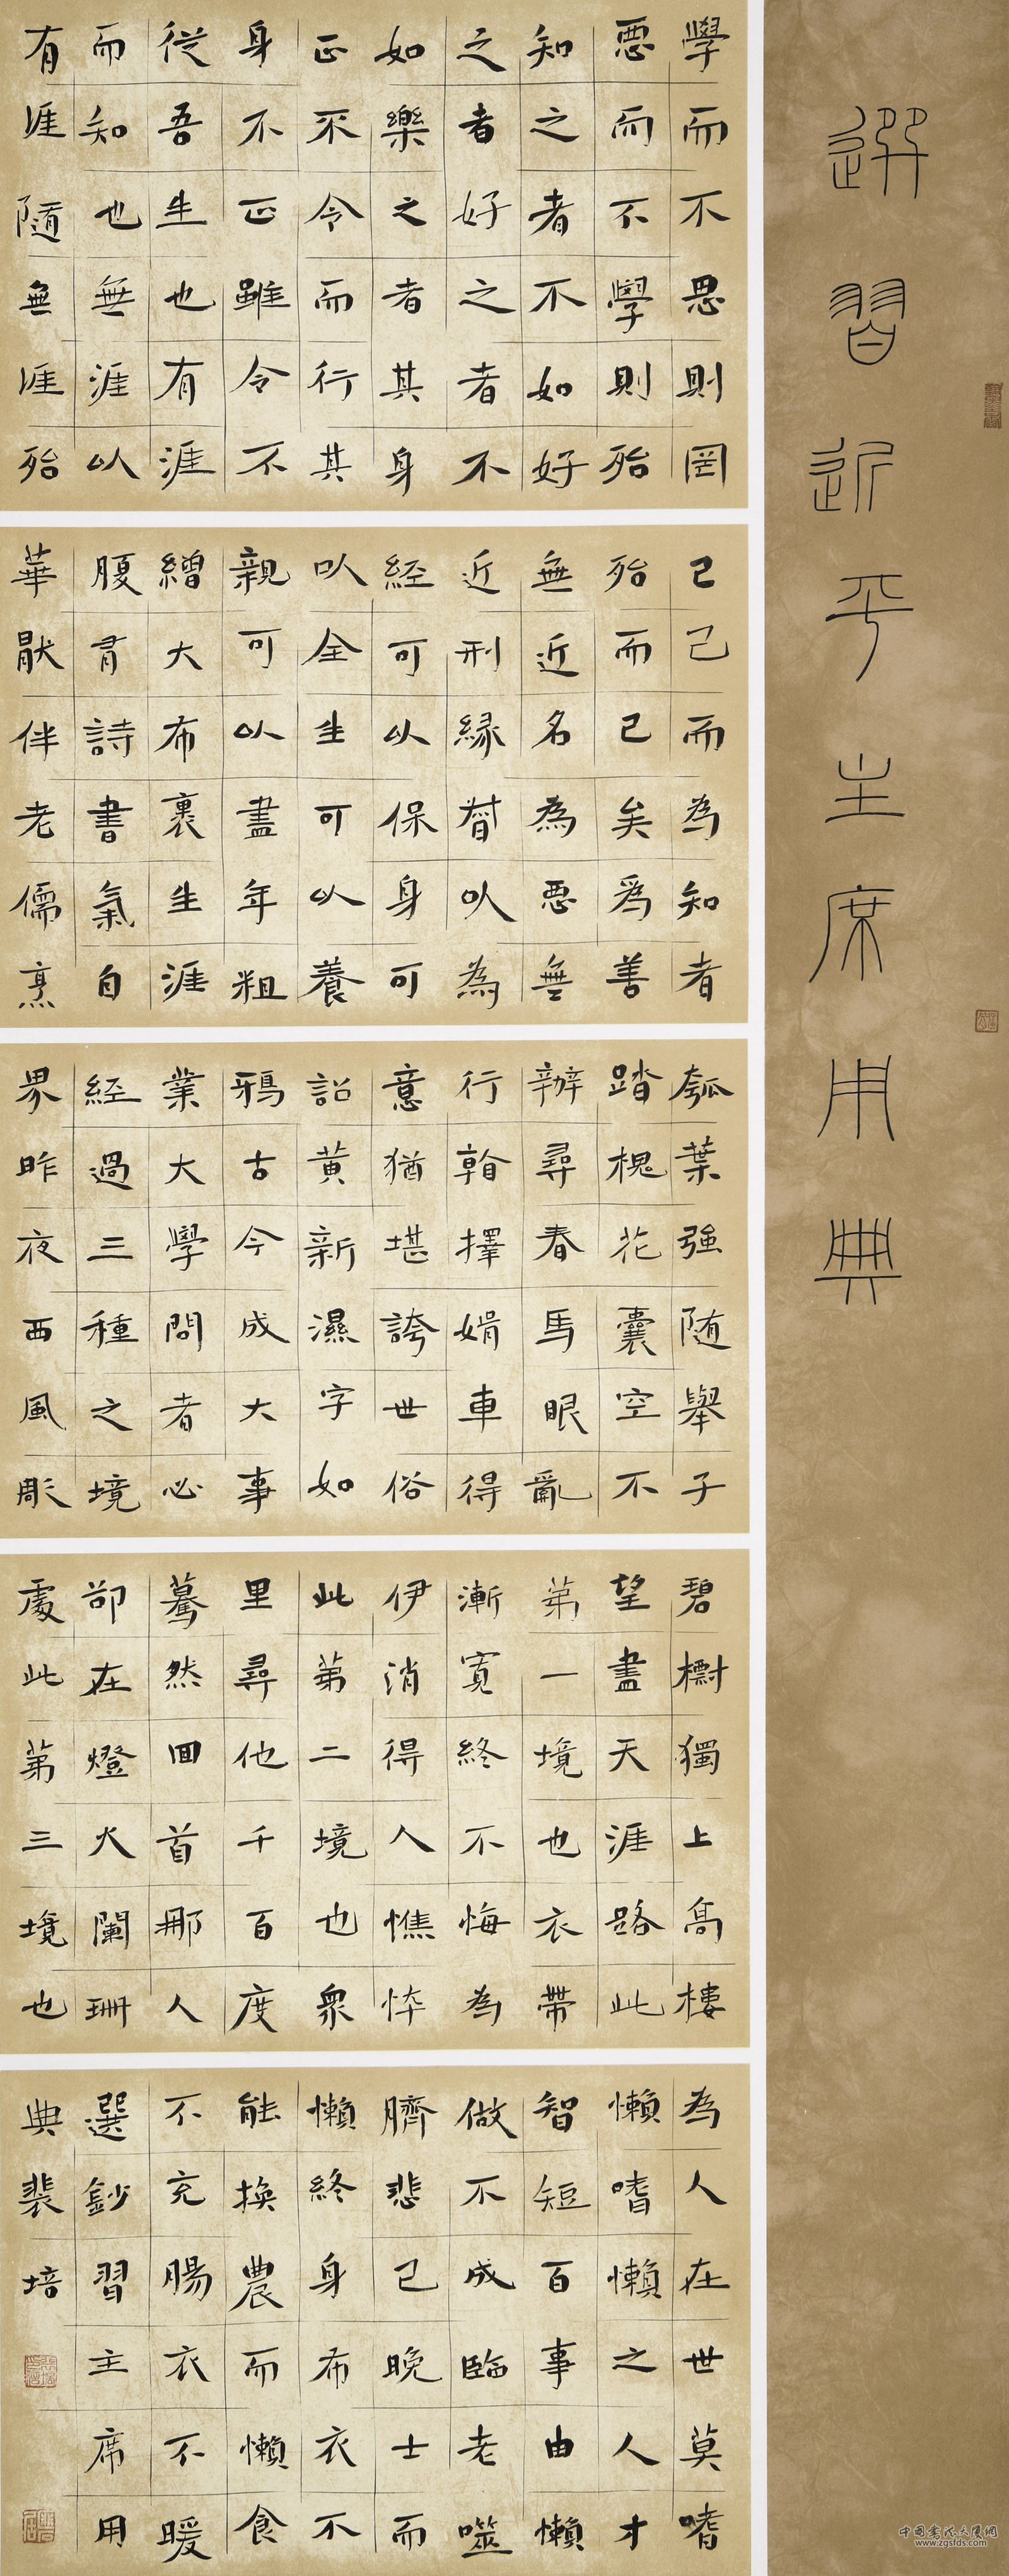 選習近平主席用典
學而不思則罔
思而不學則殆
知之者不如好
之者好之者不
如樂之者其身
正不令而行其
身不正雖令不
從吾生也有涯
而知也無涯以
有涯隨無涯殆
已已而為知者
殆而已矣為善
無近名為惡無
近刑緣督以為
經可以保身可
以全生可以養
親可以盡年粗
繒大布裹生涯
腹有詩書氣自
華厭伴老儒烹
瓠葉強随舉子
踏槐花囊空不
辦尋春馬眼亂
行看擇婿車得
意猶堪誇世俗
詔黃新濕字如
鴉古今成大事
業大學問者必
經過三種之境
界昨夜西風彫
碧樹獨上高樓
望盡天涯路此
第一境也衣帶
漸寬終不悔為
伊消得人憔悴
此第二境也眾
里尋他千百度
驀然回首那人
卻在燈火闌珊
處此第三境也
為人在世莫嗜
懶嗜懶之人才
智短百事由懶
做不成臨老噬
臍悲已晚士而
懶終身布衣不
能換農而懶食
不充腸衣不暖
選鈔習主席用
典裴培
www.zgsfds.com